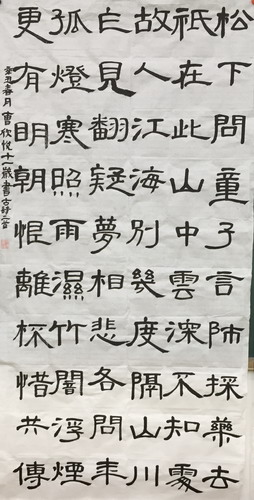 松下問童子言師採藥去
祇在此山中雲深不知處
故人江海別幾度隔山川
乍見翻疑夢相悲各問年
孤燈寒照雨濕竹闇浮煙
更有明朝恨離杯惜共傳
辛丑春月曾欣悅十一歲書古詩二首